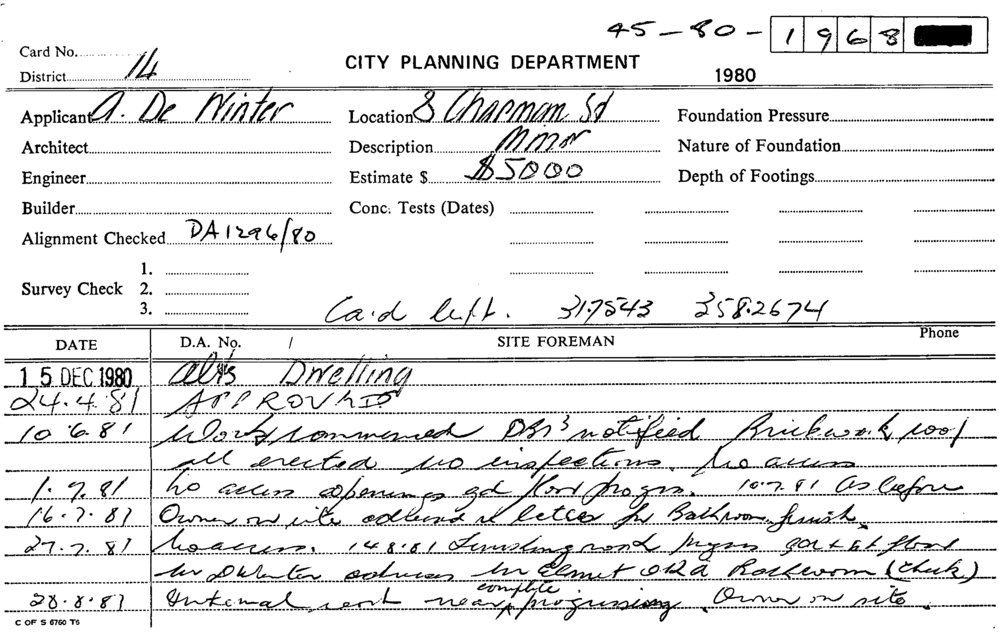 45-80-1968
Card No.
District 14
CITY PLANNING DEPARTMENT
1980
Applicant A. De Winter Location 8 Chapman St Foundation Pressure
Architect Description Minor Nature of Foundation
Engineer Estimate $ $5000 Depth of Footings
Builder Conc. Tests (Dates)
Alignment Checked DA1296/80
1.
Survey Check 2.
3.
Card left. 317543 3582674
DATE D.A. No. / SITE FOREMAN Phone
15 DEC 1980 Alts Dwelling
24.4.81 APPROVED
10.6.81 Work commenced notified Brickwork, roof
all erected no inspections. No access
1.7.81 No access openings gd floor progrs. 10.7.81 As before
16.7.81 Owner on site re letter for Bathroom finish.
27.7.81 No access. 14.8.81 floor
Mr DWinter Mr Bathroom (check)
28.8.81 Internal work near complete progressing. Owner on site.
C OF S 6760 T6